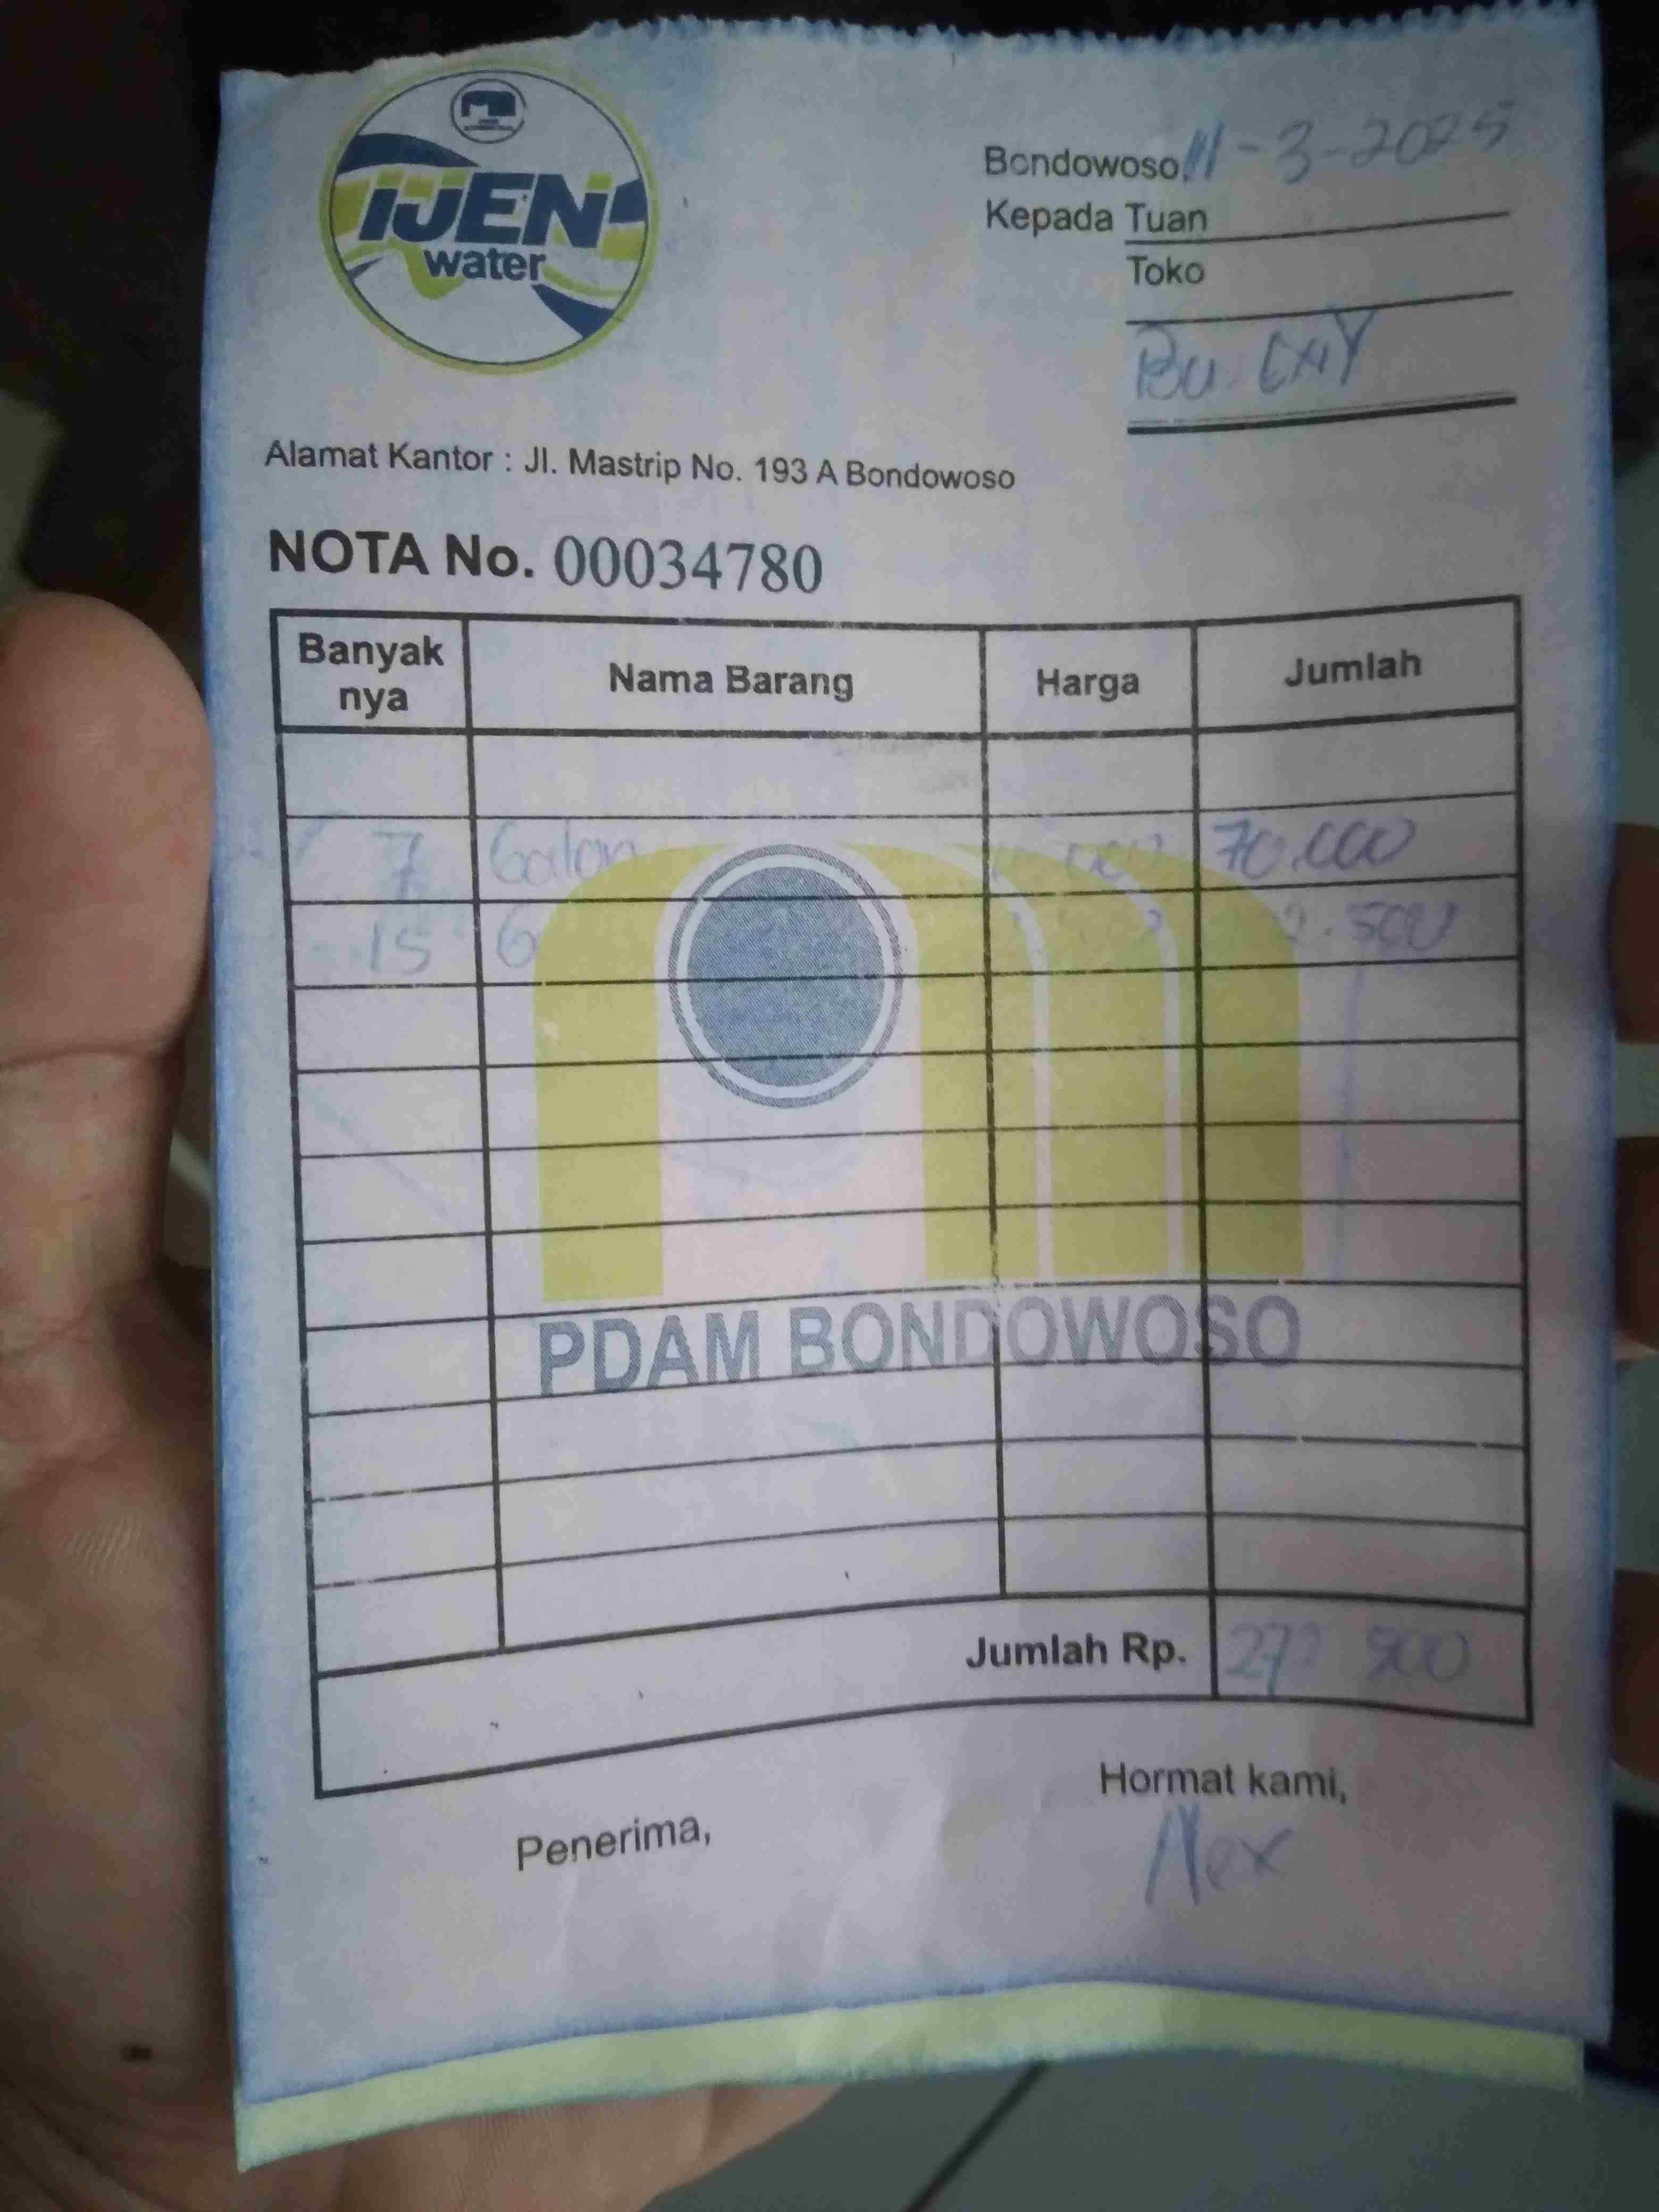 IJEN
water
Bondowoso, 11-3-2025
Kepada Tuan
Toko
Bu. ENY
Alamat Kantor : Jl. Mastrip No. 193 A Bondowoso
NOTA No. 00034780
Banyak nya Nama Barang Harga Jumlah
7 Galon 70.000
15 G .500
PDAM BONDOWOSO
Jumlah Rp.
Hormat kami,
Penerima,